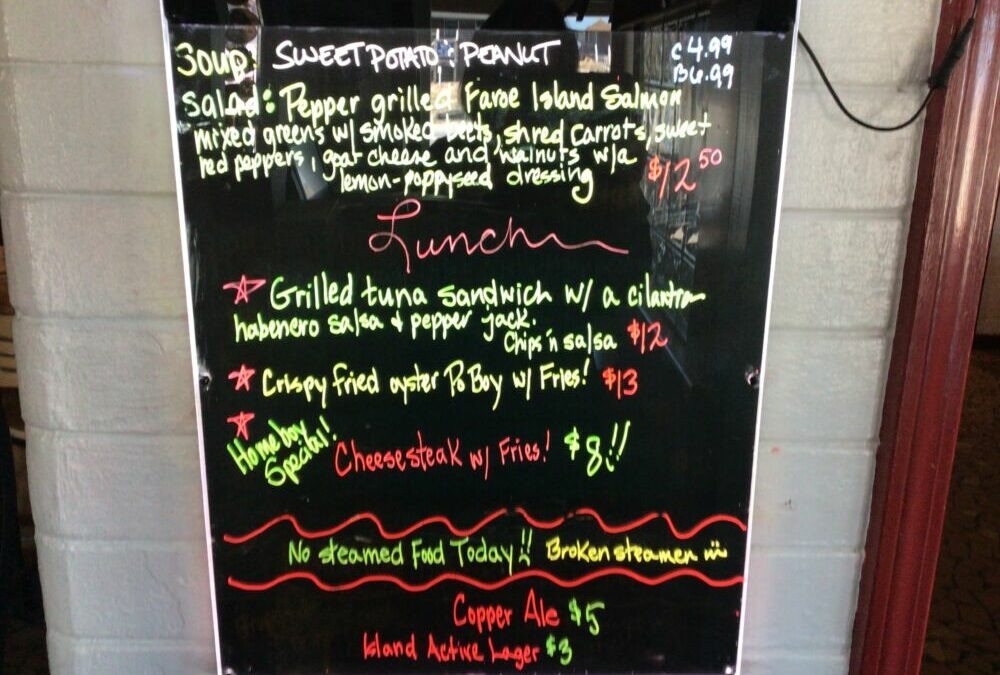 Soup: SWEET POTATO : PEANUT C 4.99
B 6.99
Salad: Pepper grilled Faroe Island Salmon
mixed greens w/ smoked beets, shred carrots, sweet
red peppers, goat cheese and walnuts w/a
lemon-poppyseed dressing $12.50
Lunch
Grilled tuna sandwich w/ a cilantro
habenero salsa & pepper jack.
Chips 'n salsa $12
Crispy fried oyster Po Boy w/ Fries! $13
Homeboy
Special! Cheesesteak w/ Fries! $8!!
No steamed Food Today!! Broken steamer
Copper Ale $5
Island Active Lager $3